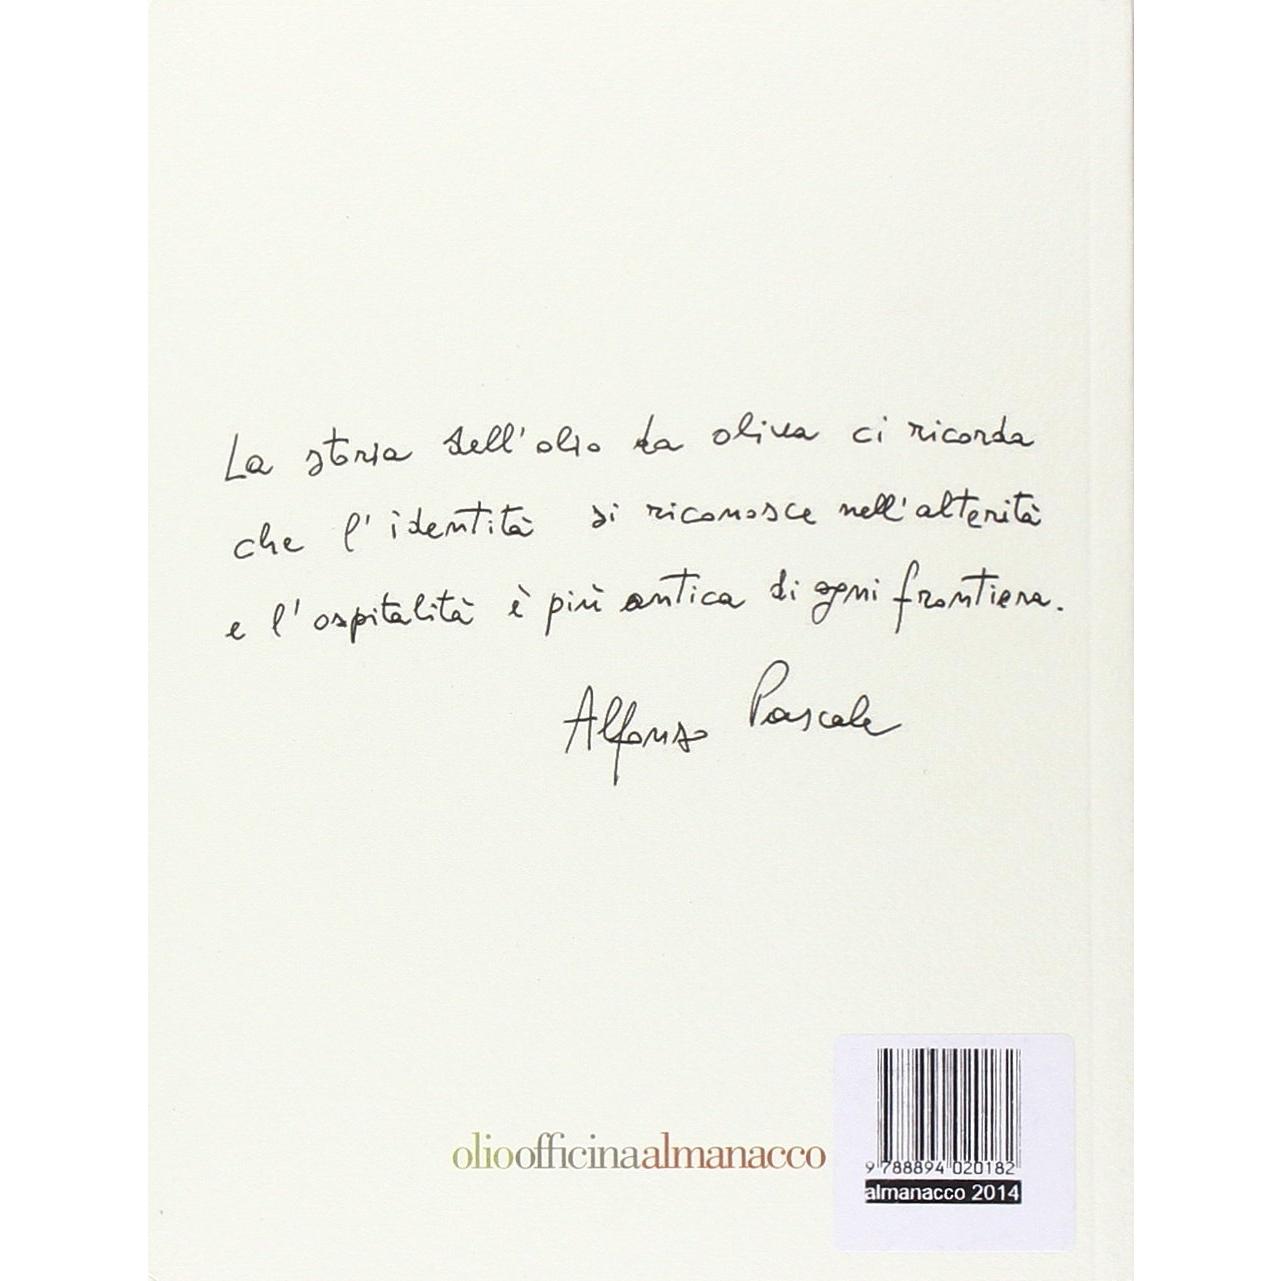 La storia dell'olio da oliva ci ricorda
che l'identità si riconosce nell'alterità
e l'ospitalità è più antica di ogni frontiera.
Alfonso Pascale
olioofficinaalmanacco
9 788894 020182
almanacco 2014